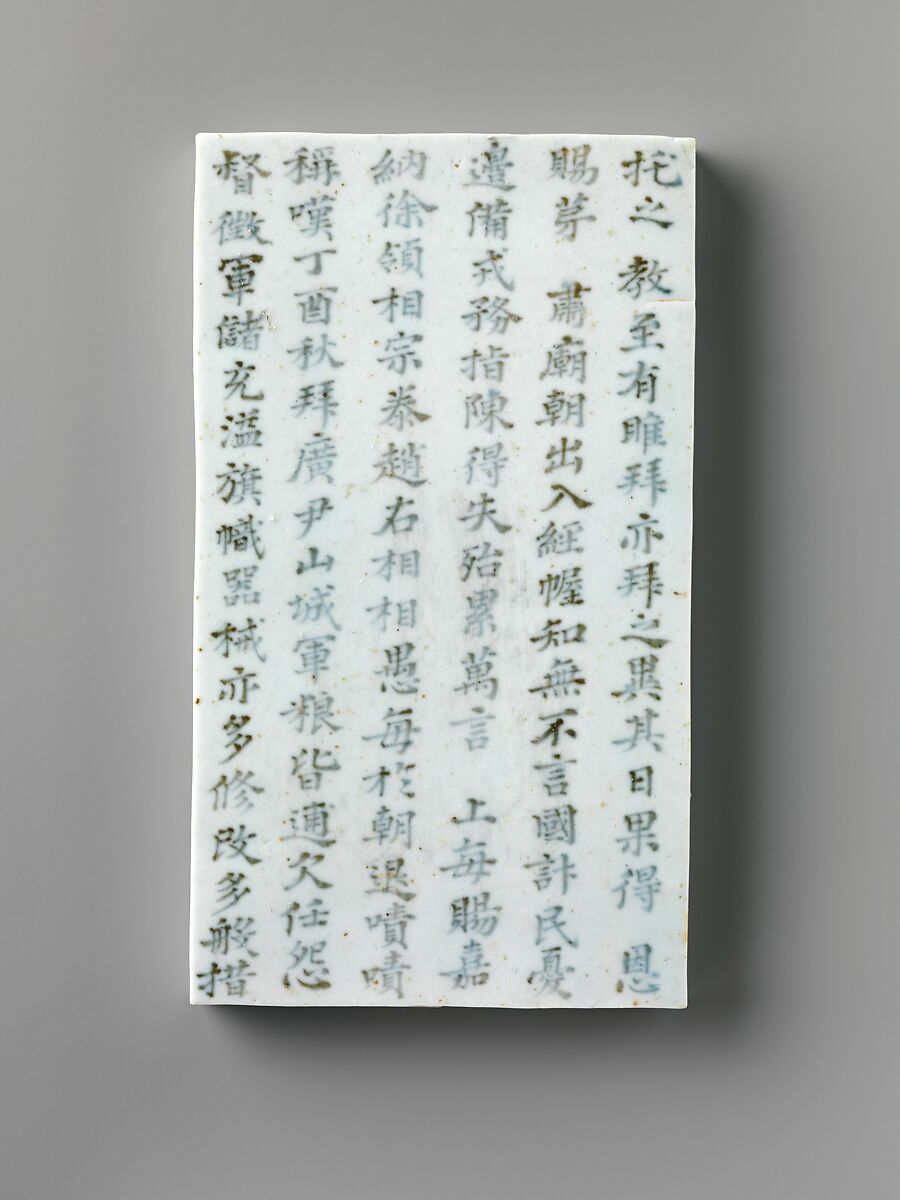 托之 教至有雎拜亦拜之異其日果得 恩
賜芽 肅廟朝出入經幄知無不言國計民憂
邊備戎務指陳得失殆累萬言 上每賜嘉
納徐領相宗泰趙右相相愚每於朝退嘖嘖
稱嘆丁酉秋拜廣尹山城軍粮皆逋欠任怨
督徵軍儲充溢旗幟器械亦多修改多般措